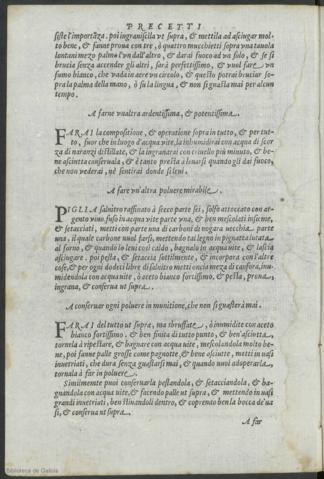 PRECETTI
siste l'importãza. poi ingraniscila vt supra, & mettila ad asciugar mol-
to bene, & fanne proua con tre, ò quattro mucchietti sopra vna tauola
lontani mezo palmo l'vn dall'altro, & darai fuoco ad vn solo, & se si
brucia senza accender gli altri, sarà perfettissimo, & vuol fare vn
fumo bianco, che vada in aere vn circolo, & questo potrai bruciar so-
pra la palma della mano, ò su la lingua, & non si guasta mai per alcun
tempo.
A farne vn'altra ardentissima, & potentissima.
FARAI la compositione, & operatione sopra in tutto, & per tut-
to, fuor che in luogo d'acqua vite, la inhumidirai con acqua di scor
za di naranzi distillate, & la ingranarai con criuello più minuto, & be-
ne asciutta conseruala, & è tanto presta à leuarsi quando gli dai fuoco,
che non vederai, nè sentirai donde si leui.
A fare vn'altra poluere mirabile.
PIGLIA salnitro raffinato à secco parte sei, solfo attoccato con ar-
gento viuo, fuso in acqua vite parte vna, & ben mescolati insieme,
& setacciati, metti con parte vna di carboni di nogara vecchia parte
una, il quale carbone vuol farsi, mettendo tal legno in pignatta lutata
al forno, & quando lo leui così caldo, bagnalo in acqua vite, & lascia
asciugare. poi pesta, & setaccia sottilmente, & incorpora con l'altre
cose, & per ogni dodeci libre di salnitro metti oncia meza di canfora, inu-
midendola con acqua vite, ò aceto bianco fortissimo, & pesta, proua,
ingrana, & conserua ut supra.
A conseruar ogni poluere in munitione, che non si guasterà mai.
FARAI del tutto ut supra, ma sbruffate, ò inumidite con aceto
bianco fortissimo, & ben finita di tutto punto, & ben'asciutta,
tornela à ripestare, & bagnare con acqua vite, mescolandola molto be-
ne, poi fanne palle grosse come pagnotte, & bene asciutte, metti in uasi
inuetriati, che dura senza guastarsi mai, & quando vuoi adoperarla,
tornala à far in poluere.
Similmente puoi conseruarla pestandola, & setacciandola, & ba-
gnandola con acqua uite, & facendo palle ut supra, & mettendo in uasi
grandi inuetriati, ben stiuandoli dentro, & coprendo ben la bocca de'ua
si, & conserua ut supra.
A far
Biblioteca de Galicia